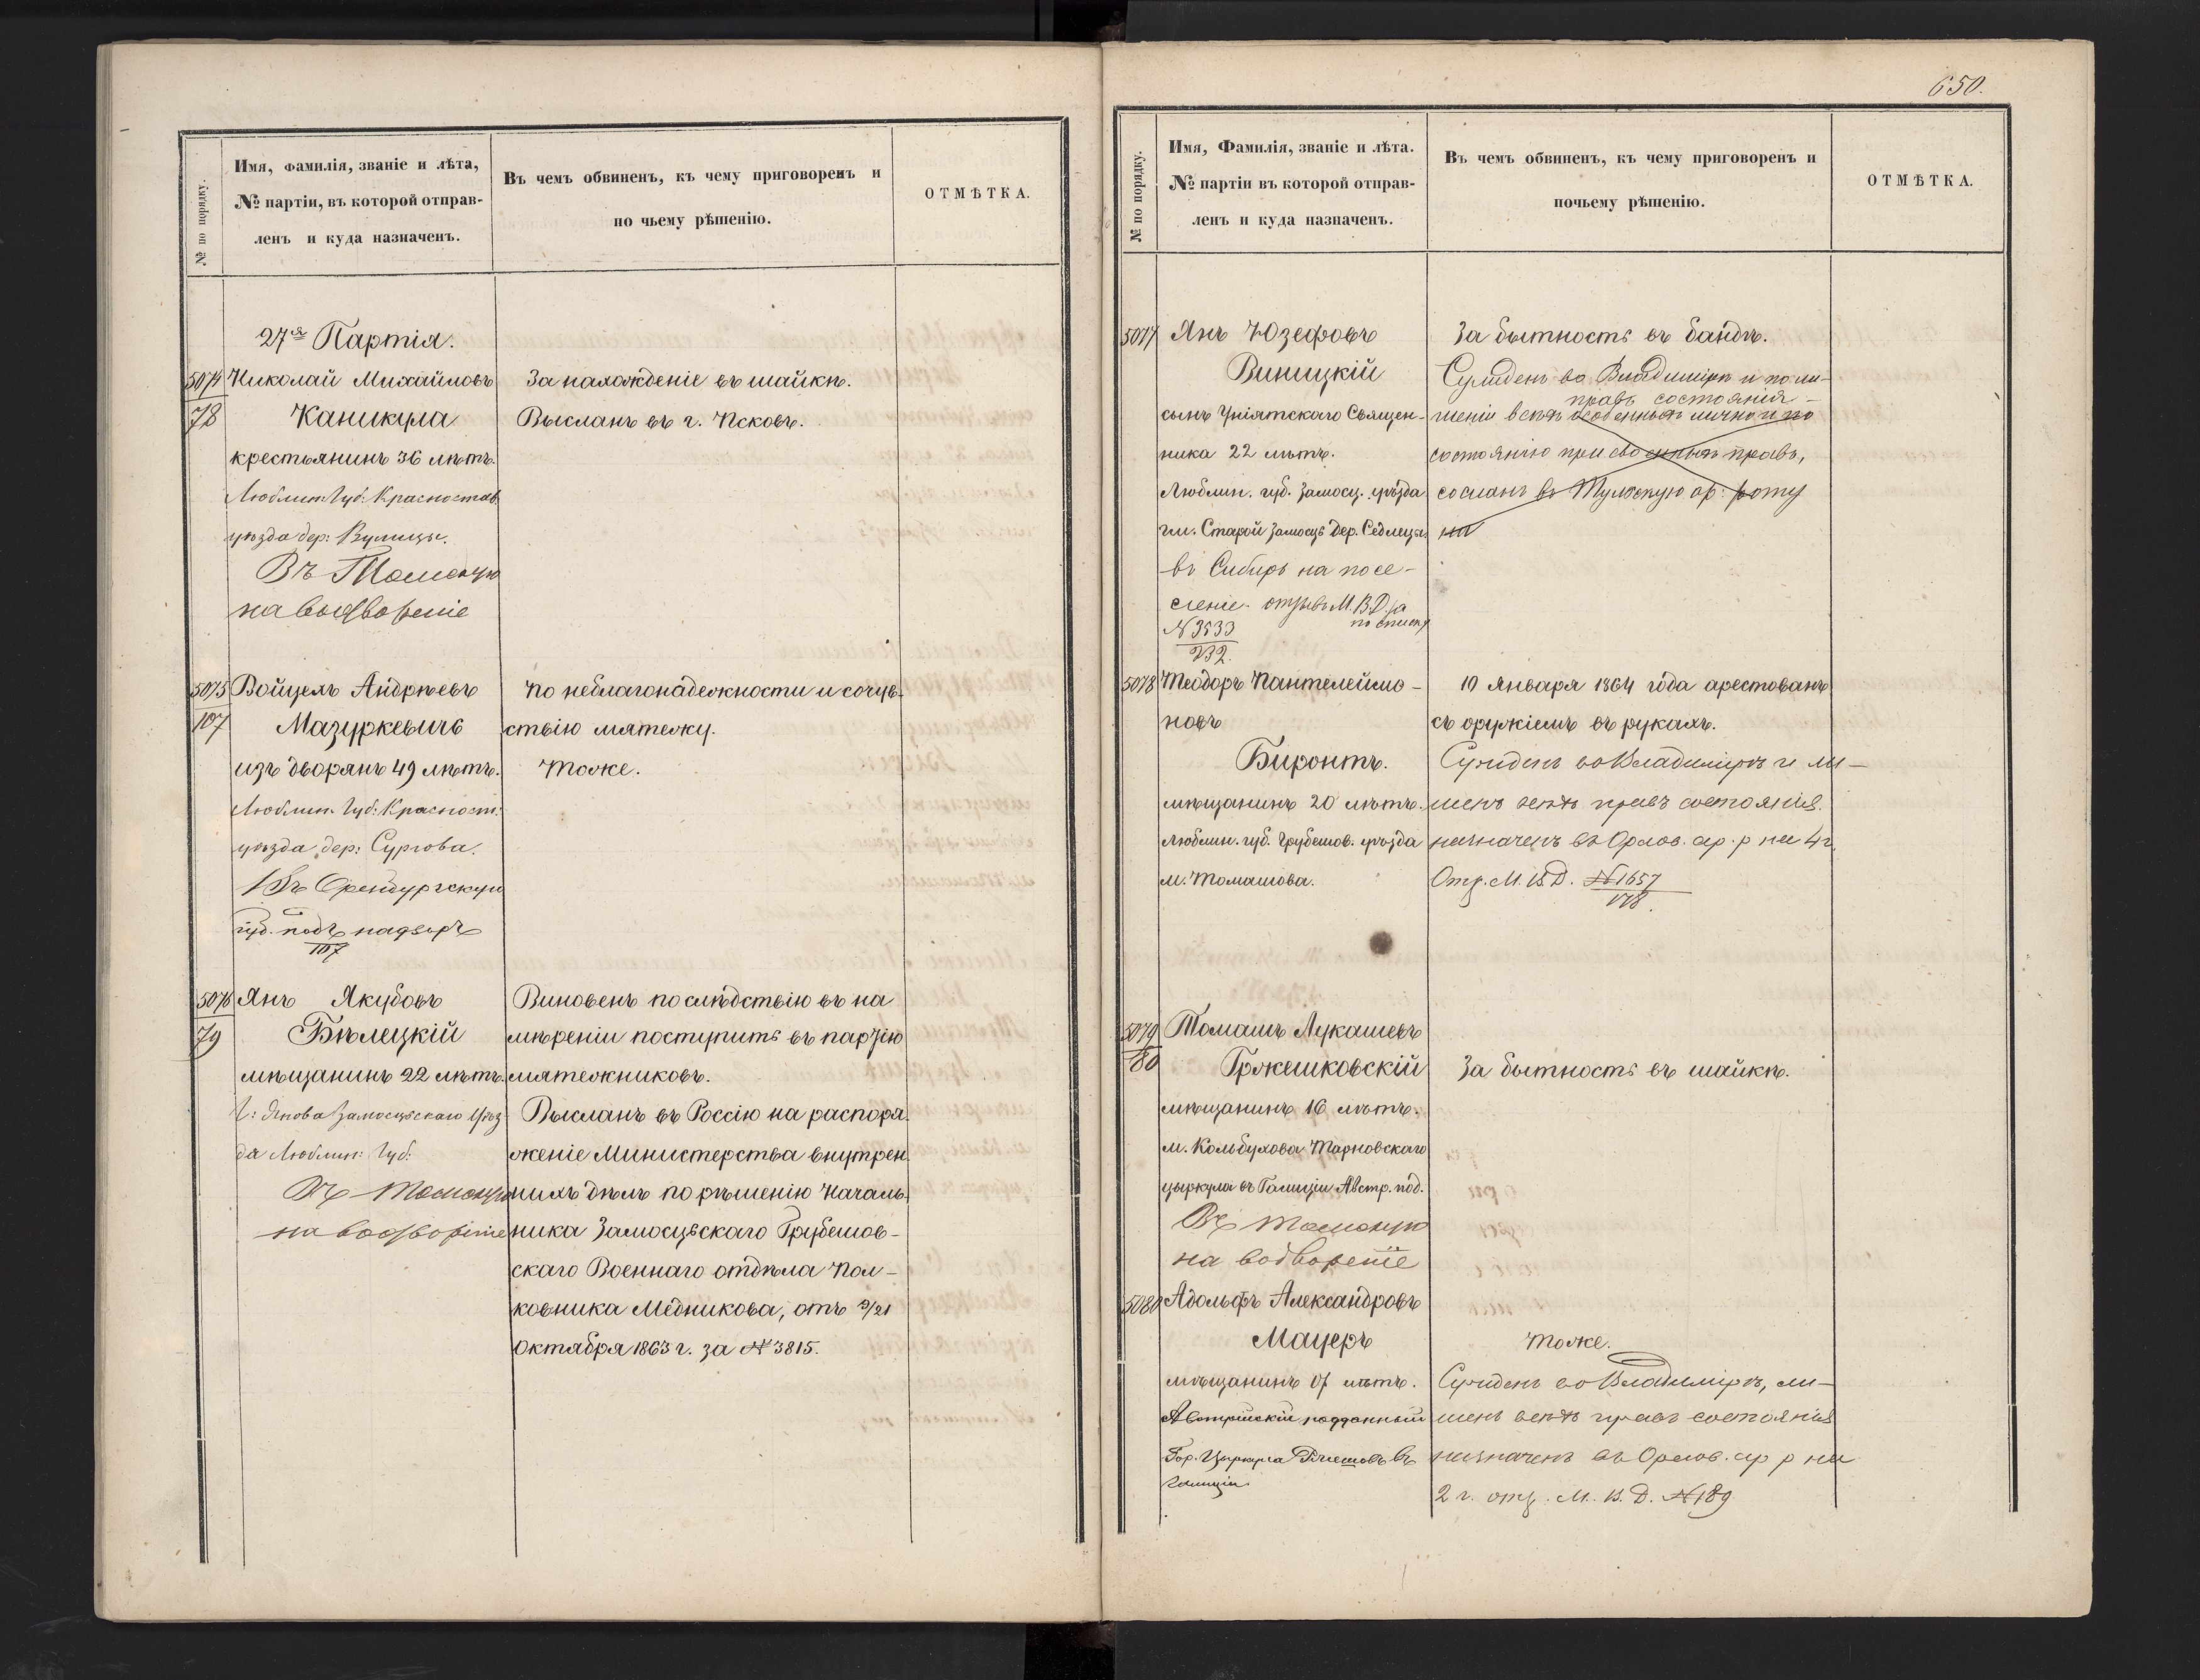 № по порядку.
Имя, фамилія, званіе и лѣта,
№ партіи, въ которой отправ-
ленъ и куда назначенъ.
Въ чемъ обвиненъ, къ чему приговоренъ и
по чьему рѣшенію.
ОТМѢТКА.
27я Партія.
5074
78
Николай Михайловъ
Каникула
крестьянинъ 36 лѣтъ.
Люблин. Губ: Красностав.
уѣзда дер:
Въ Томскую
на водвореніе
За нахожденіе въ шайкѣ.
Высланъ въ г. Псковъ.
5075
107
Войцехъ Андрѣевъ
Мазуркевичъ
изъ дворянъ 49 лѣтъ.
Люблин. Губ: Красност:
уѣзда дер: Сурхова.
Въ Оренбургскую
губ. подъ надзоръ
107
По неблагонадежности и сочув-
ствію мятежу.
Тоже.
5076
79
Янъ Якубовъ
Бѣлецкій
мѣщанинъ 22 лѣтъ.
Г: Янова Замосцьскаго Уѣз
да Люблин: Губ:
Въ Томскую
на водвореніе
Виновенъ по слѣдствію въ на
мѣреніи поступить въ партію
мятежниковъ.
Высланъ въ Россію на распоря
женіе Министерства внутрен
нихъ дѣлъ по рѣшенію Началь
ника Замосцьскаго Грубешов-
скаго Военнаго отдѣла Пол-
ковника Мѣдникова, отъ 9/21
Октября 1863 г. за № 3815.
650.
№ по порядку.
Имя, Фамилія, званіе и лѣта.
№ партіи въ которой отправ-
ленъ и куда назначенъ.
Въ чемъ обвиненъ, къ чему приговоренъ и
почьему рѣшенію.
ОТМѢТКА.
5077
Янъ Юзефовъ
Виницкій
сынъ Уніятскаго Священ-
ника 22 лѣтъ.
Люблин. губ. Замосц. уѣзда
гм. Старой Замосць Дер. Седлецы.
въ Сибирь на посе-
леніе. отзывъ М. В. Д. за
№ 3533
по списку
232.
За бытность въ бандѣ.
Сужденъ во Владимірѣ и по ли-
правъ состоянія
шеніи всѣхъ особенныхъ лично и по
состоянію присвоенныхъ правъ,
сосланъ въ Тульскую ар: роту
на
5078
Теодоръ Пантелеймо-
новъ
Биронтъ.
мѣщанинъ 20 лѣтъ.
Люблин. губ. Грубешов. уѣзда
м. Томашова.
10 Января 1864 года арестованъ
съ оружіемъ въ рукахъ.
Сужденъ во Владимірѣ и ли-
шенъ всѣхъ правъ состоянія
назначенъ въ Орлов. ар. р на 4 г.
Отз. М. В. Д. № 1657
178.
5079
80
Томашъ Лукашевъ
Гржешковскій
мѣщанинъ 16 лѣтъ.
м. Кольбухова Тарновскаго
цыркула въ Галиціи Австр. под.
Въ Томскую
на водвореніе
За бытность въ шайкѣ.
5080
Адольфъ Александровъ
Мацеръ
мѣщанинъ 17 лѣтъ.
Австрійскій подданный
Гор. Циркула Ржешовъ въ
Галиціи.
Тоже.
Сужденъ во Владимірѣ, ли-
шенъ всѣхъ правъ состоянія
назначенъ въ Орлов. ар р на
2 г. отз. М. В. Д. № 189